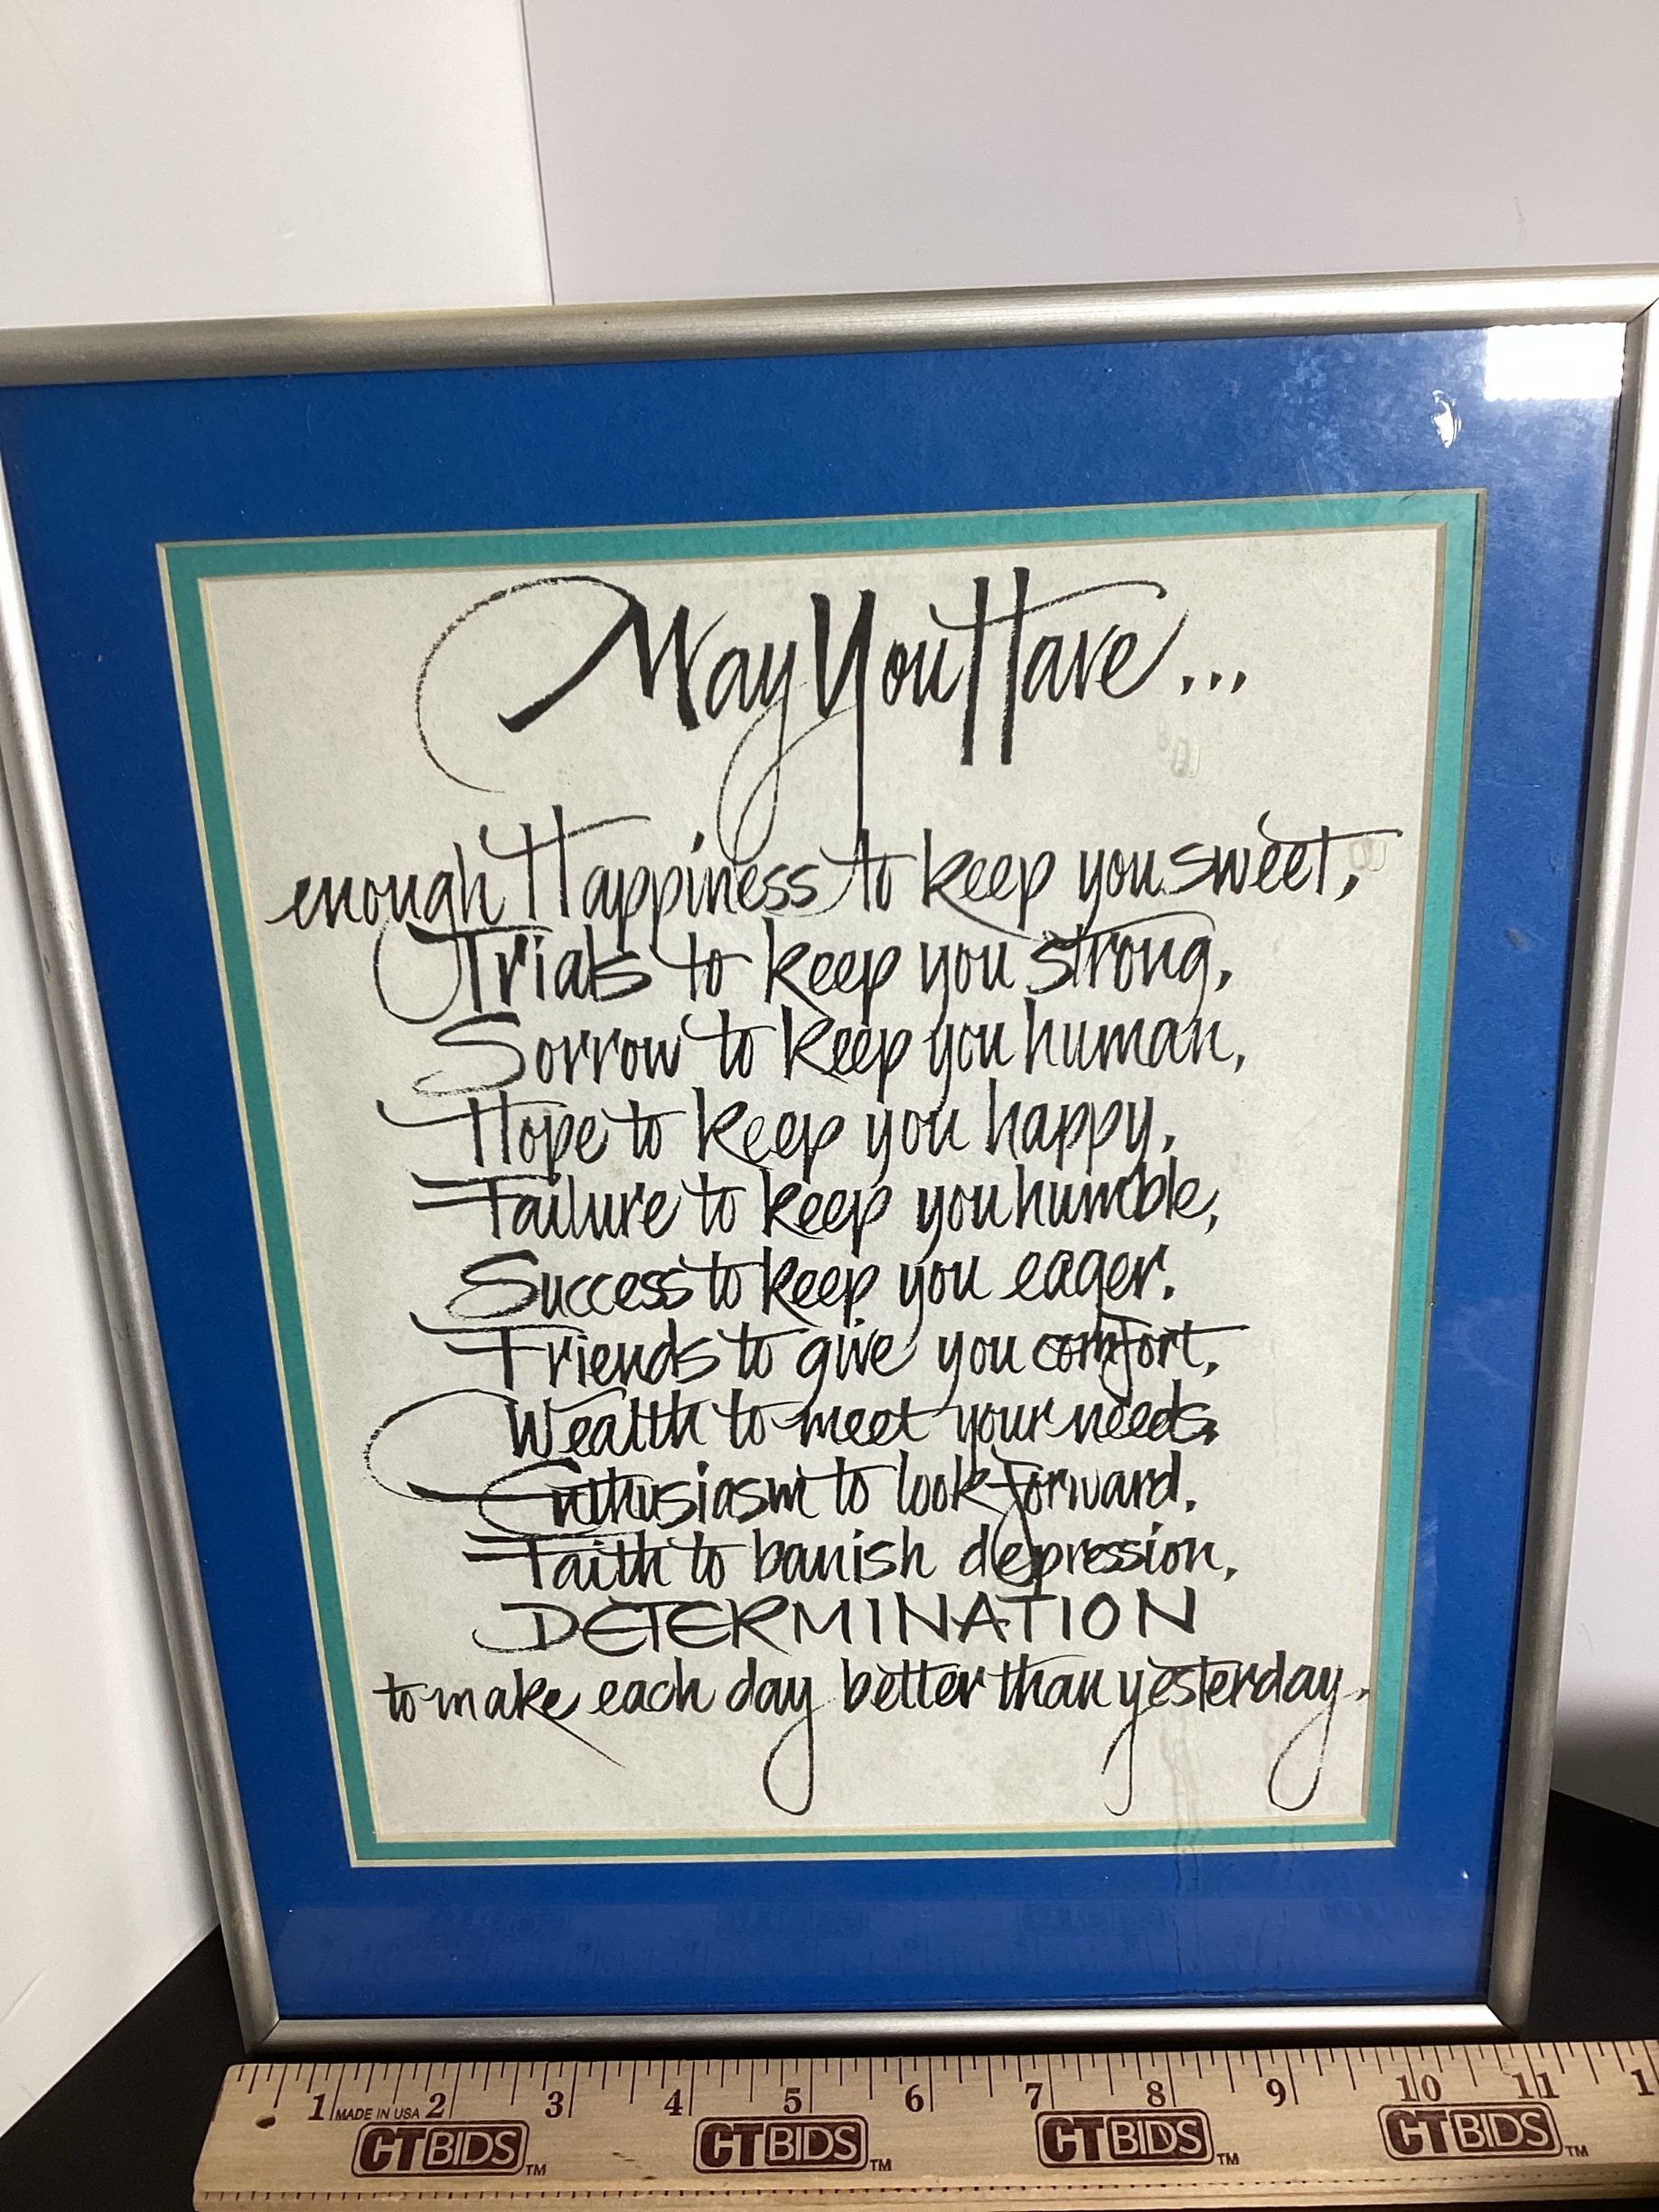 May You Have...
enough Happiness to keep you sweet,
Trials to keep you strong,
Sorrow to keep you human,
Hope to keep you happy,
Failure to keep you humble,
Success to keep you eager,
Friends to give you comfort,
Wealth to meet your needs,
Enthusiasm to look forward,
Faith to banish depression,
DETERMINATION
to make each day better than yesterday.
1 2 3 4 5 6 7 8 9 10 11 1
MADE IN USA
CTBIDS™ CTBIDS™ CTBIDS™ CTBIDS™